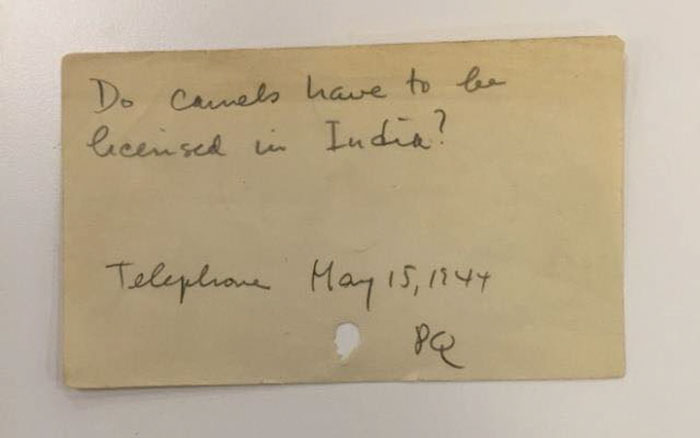 Do camels have to be
licensed in India?
Telephone May 15, 1944
PQ